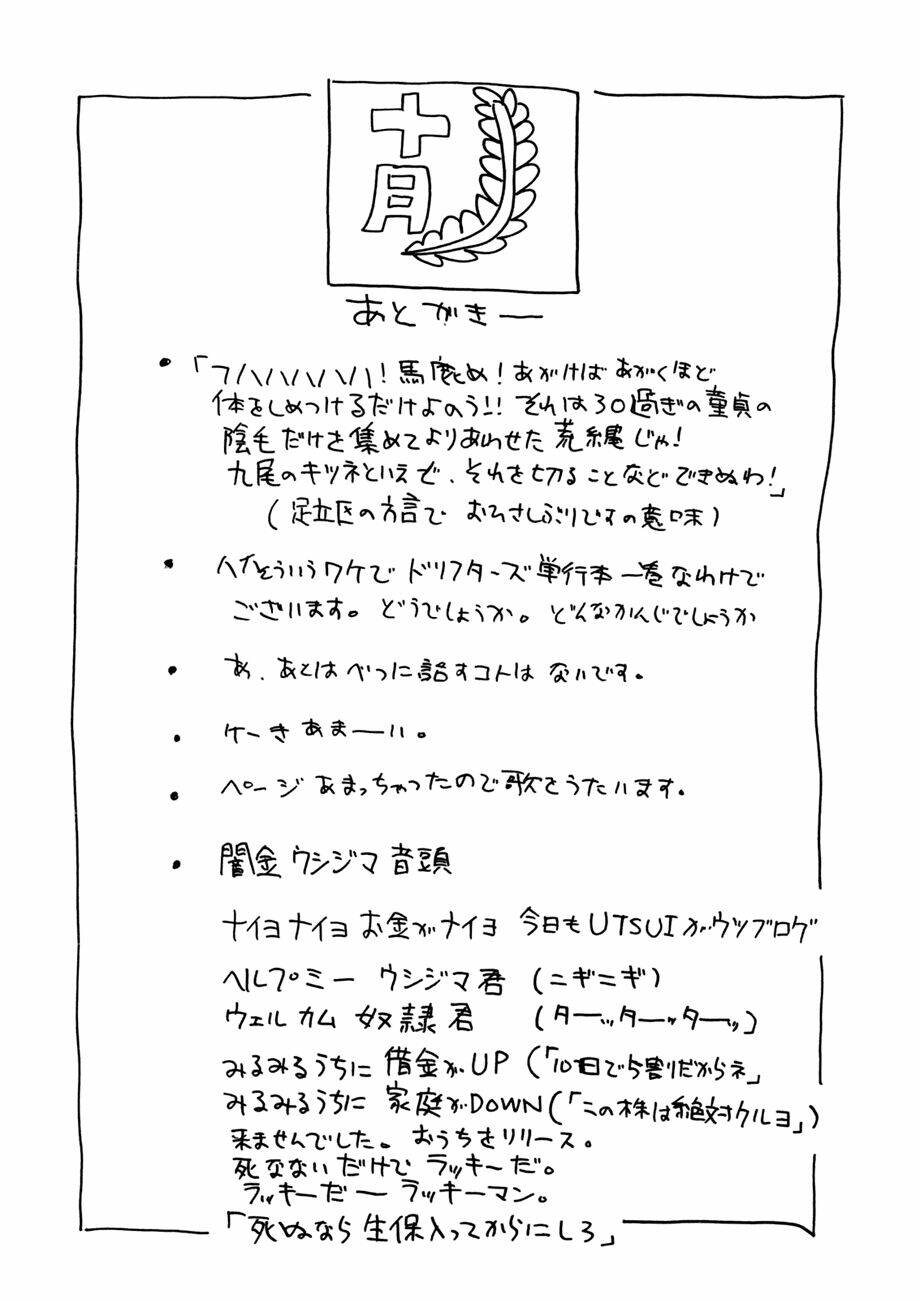 十月
あとがきー
・「フハハハハハ！馬鹿め！あがけばあがくほど
体をしめつけるだけよのう!!それは30過ぎの童貞の
陰毛だけを集めてよりあわせた荒縄じゃ！
九尾のキツネといえど、それを切ることなどできぬわ！」
(足立区の方言で おひさしぶりですの意味)
・ハイそういうワケで ドリフターズ単行本一巻なわけで
ございます。どうでしょうか。どんなかんじでしょうか
・あ、あとはべつに話すコトは ないです。
・ケーきあまーい。
・ページあまっちゃったので歌をうたいます。
・闇金ウシジマ音頭
ナイヨナイヨお金がナイヨ 今日もUTSUIがウツブログ
ヘルプミー ウシジマ君 (ニギニギ)
ウェルカム 奴隷君 (ターッターッターッ)
みるみるうちに 借金がUP (「10日で5割だからネ」
みるみるうちに 家庭がDOWN(「この株は絶対クルヨ」)
来ませんでした。おうちをリリース。
死なないだけで ラッキーだ。
ラッキーだー ラッキーマン。
「死ぬなら生保入ってからにしろ」